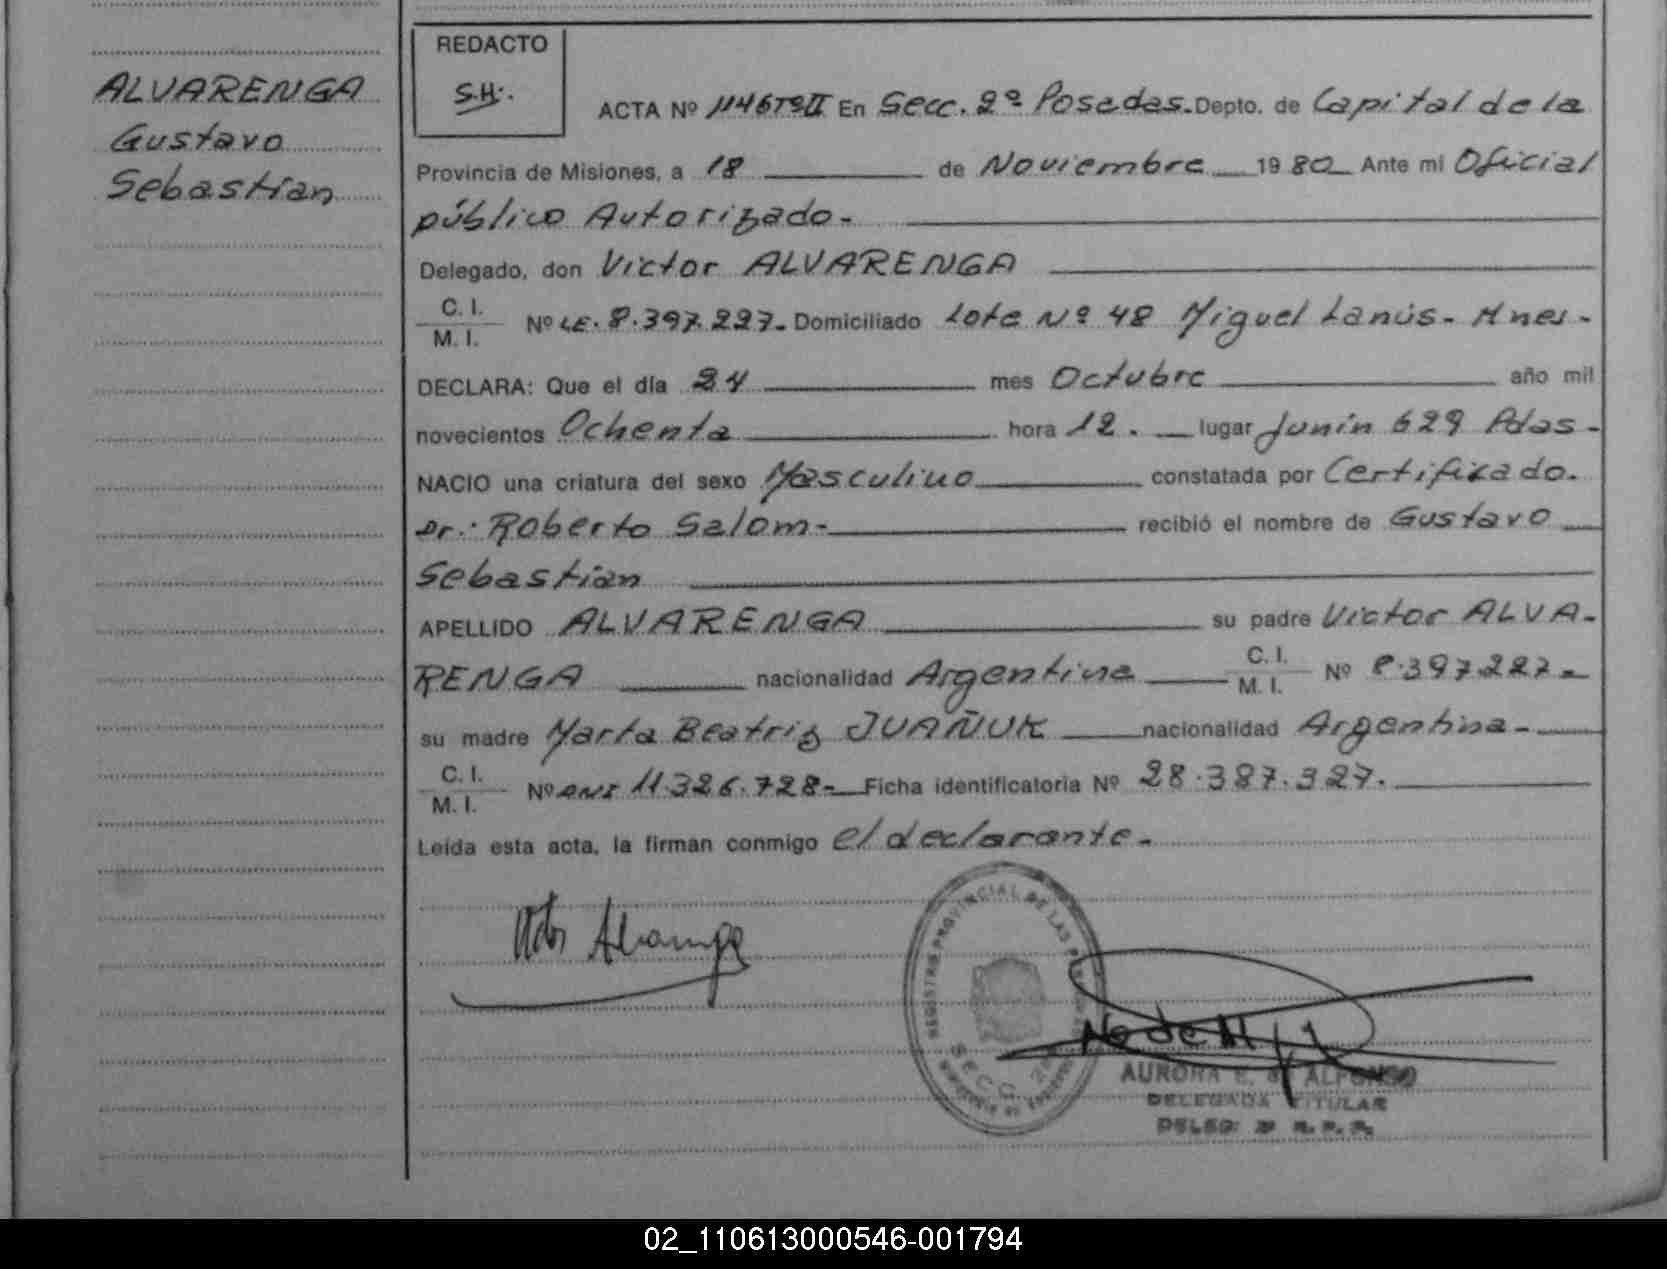 ALVARENGA
Gustavo
Sebastián
REDACTO
S.H.
ACTA Nº 1146TºII En Secc. 2º Posadas. Depto. de Capital de la
Provincia de Misiones, a 18 de Noviembre 1980 Ante mi Oficial
público Autorizado.
Delegado, don Victor ALVARENGA
C. I.
M. I. Nº LE. 8.397.227. Domiciliado Lote Nº 48 Miguel Lanús - Mnes -
DECLARA: Que el día 24 mes Octubre año mil
novecientos Ochenta hora 12. lugar Junín 629 Pdas -
NACIO una criatura del sexo Masculino constatada por Certificado.
Dr.: Roberto Salom - recibió el nombre de Gustavo
Sebastián
APELLIDO ALVARENGA su padre Victor ALVA-
RENGA nacionalidad Argentina C. I.
M. I. Nº 8.397.227 -
su madre Marta Beatriz JUAÑUK nacionalidad Argentina -
C. I.
M. I. Nº DNI 11.326.728 - Ficha identificatoria Nº 28.387.327.
Leída esta acta, la firman conmigo el declarante -
REGISTRO PROVINCIAL DE LAS
SECC. 2ª
AURORA E. de ALFONSO
DELEGADA TITULAR
DELEG. 2ª R. P. P.
02_110613000546-001794